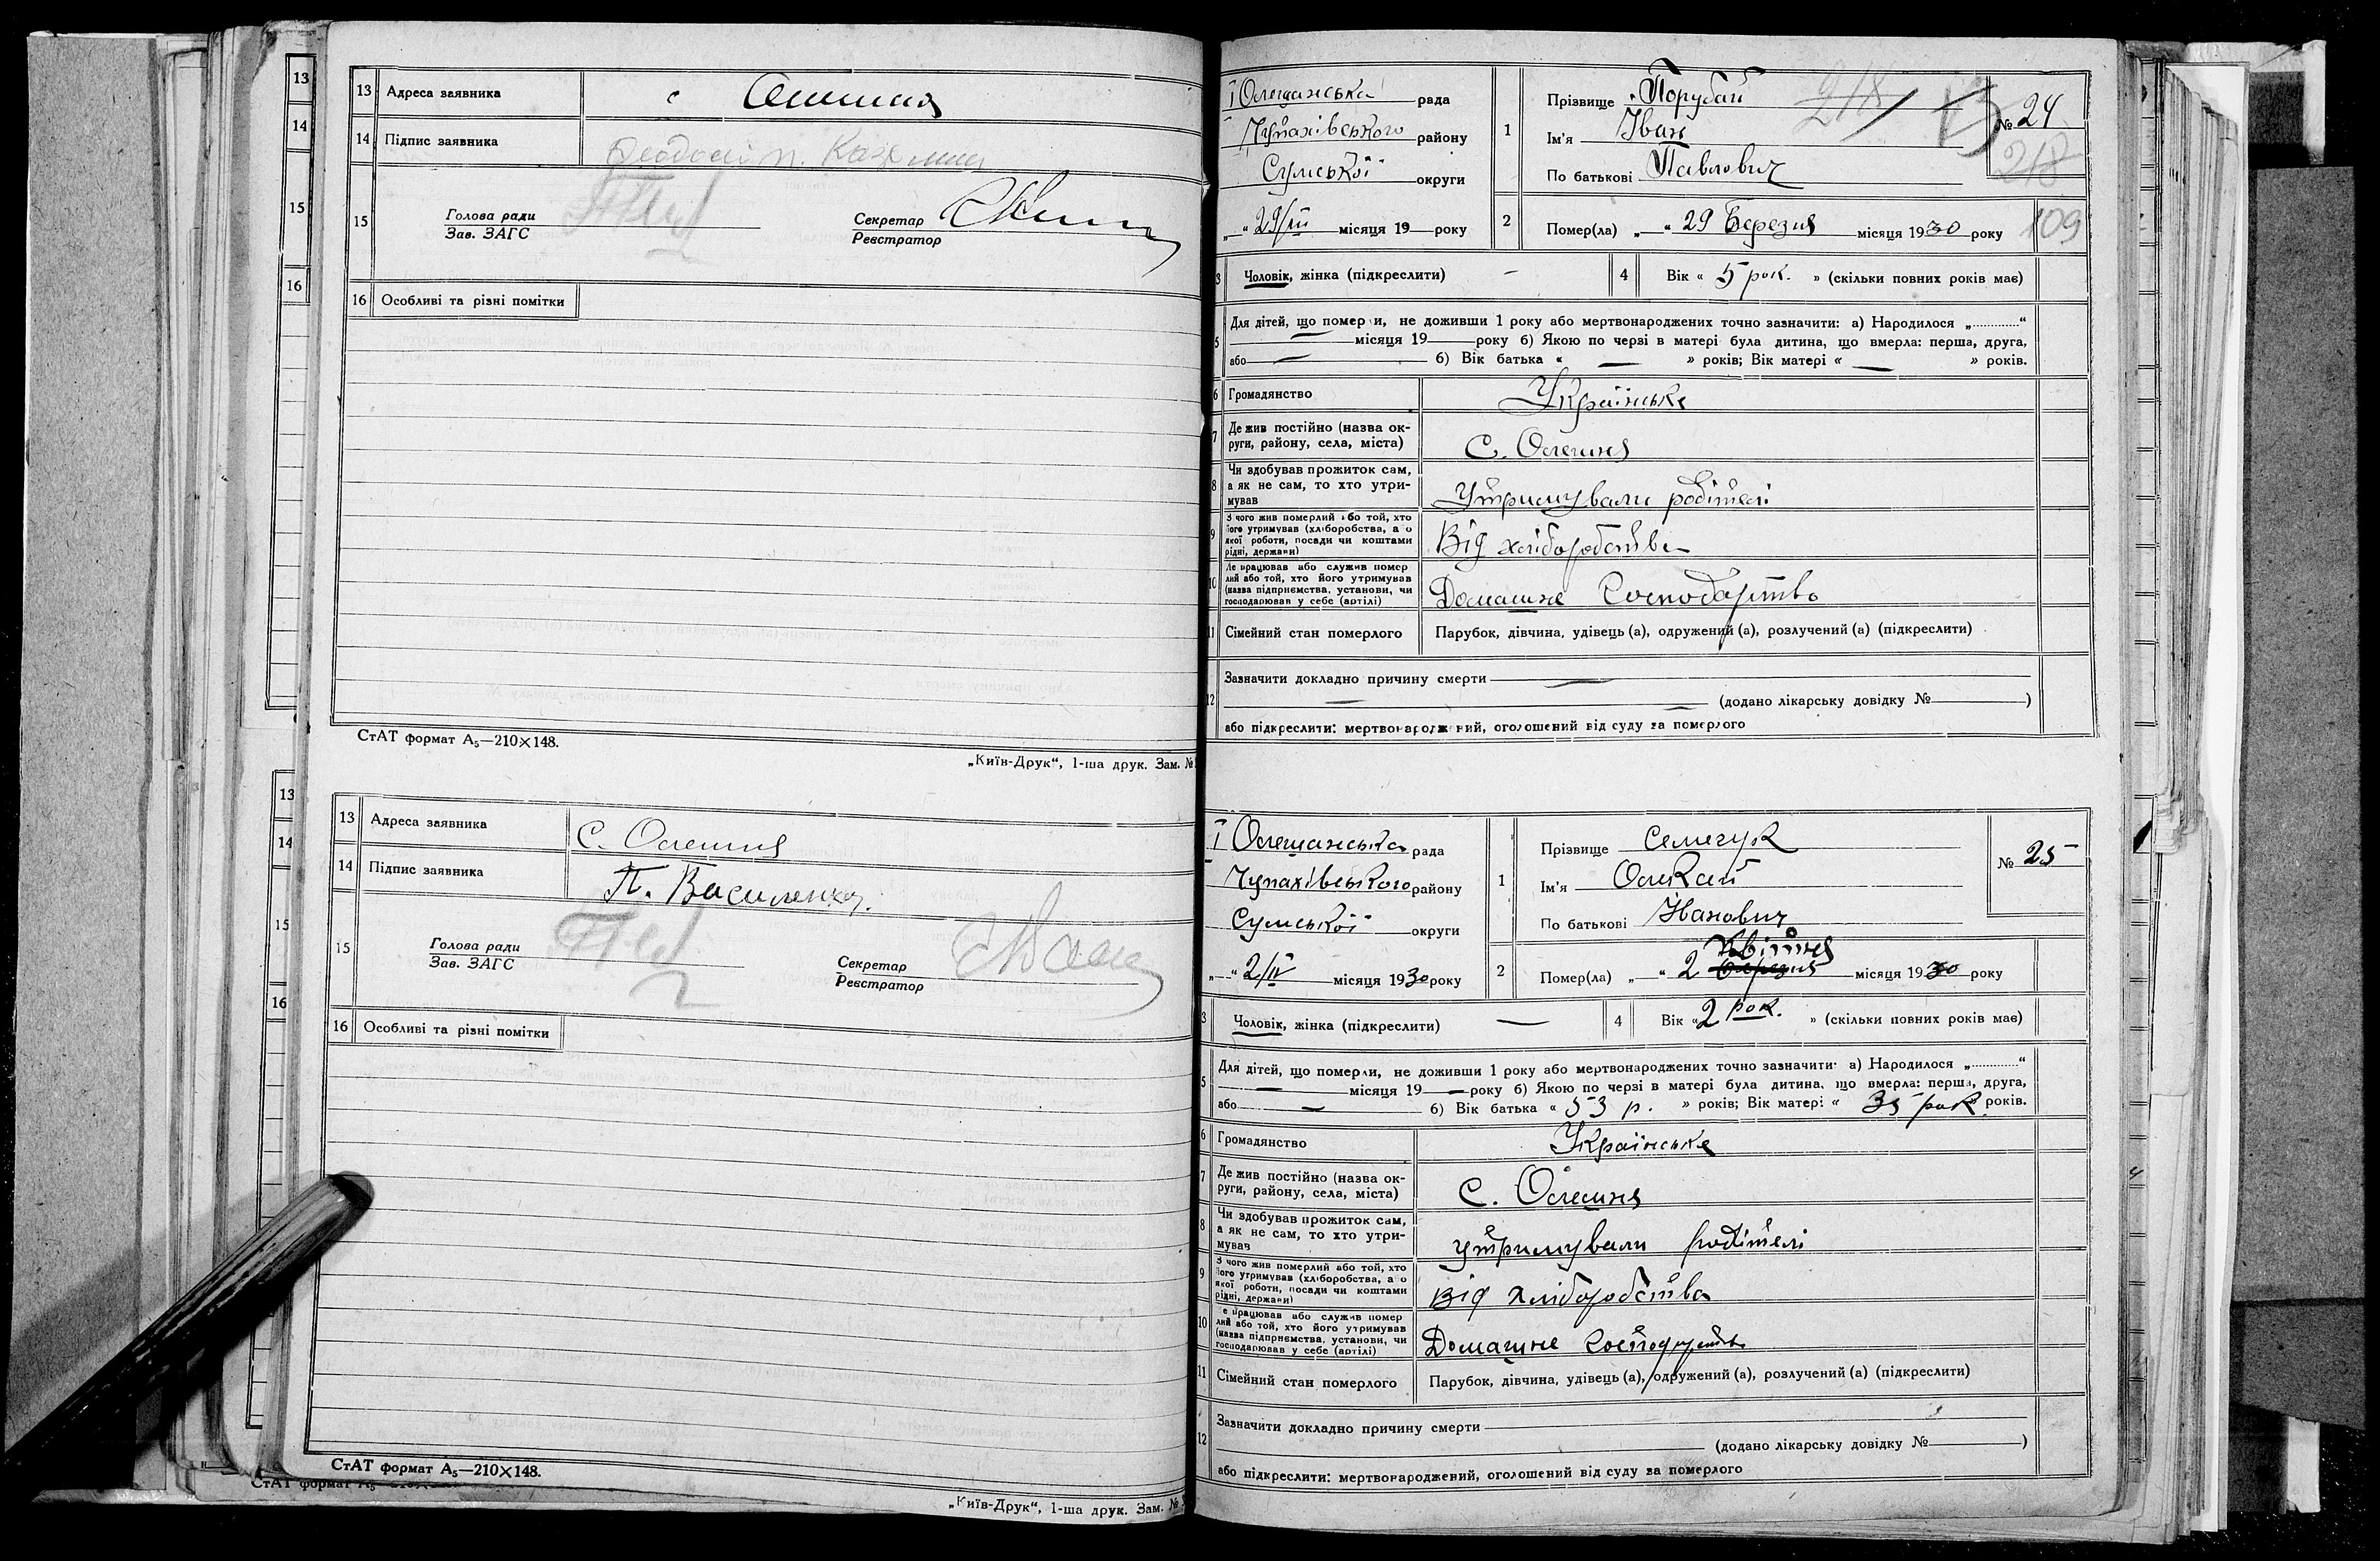 13 Адреса заявника с Олешня
14 Підпис заявника
15 Голова ради
Зав. ЗАГС
Секретар
Реєстратор
16 Особливі та різні помітки
СтАТ формат А₅—210×148.
„Київ-Друк“, 1-ша друк. Зам. №
13 Адреса заявника С. Олешня
14 Підпис заявника П. Василенко.
15 Голова ради
Зав. ЗАГС
Секретар
Реєстратор
16 Особливі та різні помітки
СтАТ формат А₅—210×148.
„Київ-Друк“, 1-ша друк. Зам. №
13
14
15
16
13
14
15
16
СтАТ формат А₅
І Олешанська рада
Чупахівського району
Сумської округи
„—“ 29/III місяця 19— року
1 Прізвище Порубай
Ім'я Іван
По батькові Павлович
218
13
№ 24
218
109
2 Помер(ла) „ “ 29 Березня місяця 1930 року
3 Чоловік, жінка (підкреслити) — 4 Вік « 5 рок. » (скільки повних років має)
5 Для дітей, що померли, не доживши 1 року або мертвонароджених точно зазначити: а) Народилося „............“
— місяця 19— року б) Якою по черзі в матері була дитина, що вмерла: перша, друга,
або — б) Вік батька « — » років; Вік матері « — » років.
6 Громадянство Українське
7 Де жив постійно (назва ок-
руги, району, села, міста) С. Олешня
8 Чи здобував прожиток сам,
а як не сам, то хто утри-
мував Утримували родітелі
9 З чого жив померлий або той, хто
його утримував (хліборобства, або
якої роботи, посади чи коштами
рідні, держави) Від хліборобства
10 Де працював або служив помер
лий або той, хто його утримував
(назва підприємства, установи, чи
господарював у себе (артілі) Домашне Господарство
11 Сімейний стан померлого Парубок, дівчина, удівець (а), одружений (а), розлучений (а) (підкреслити)
12 Зазначити докладно причину смерти —
— (додано лікарську довідку №— )
або підкреслити: мертвонароджений, оголошений від суду за померлого
І Олешанська рада
Чупахівського району
Сумської округи
„—“ 2/IV місяця 1930 року
1 Прізвище Семегук
Ім'я Олекай
По батькові Іванович
№ 25
Квітня
2 Помер(ла) „ “ 2 березня місяця 1930 року
3 Чоловік, жінка (підкреслити) — 4 Вік « 2 рок. » (скільки повних років має)
5 Для дітей, що померли, не доживши 1 року або мертвонароджених точно зазначити: а) Народилося „............“
— місяця 19— року б) Якою по черзі в матері була дитина, що вмерла: перша, друга,
або — б) Вік батька « 53 р. » років; Вік матері « 35 рок » років.
6 Громадянство Українське
7 Де жив постійно (назва ок-
руги, району, села, міста) С. Олешня
8 Чи здобував прожиток сам,
а як не сам, то хто утри-
мував утримували родітелі
9 З чого жив померлий або той, хто
його утримував (хліборобства, або
якої роботи, посади чи коштами
рідні, держави) Від хліборобства
10 Де працював або служив помер
лий або той, хто його утримував
(назва підприємства, установи, чи
господарював у себе (артілі) Домашне Господарство
11 Сімейний стан померлого Парубок, дівчина, удівець (а), одружений (а), розлучений (а) (підкреслити)
12 Зазначити докладно причину смерти
(додано лікарську довідку №— )
або підкреслити: мертвонароджений, оголошений від суду за померлого